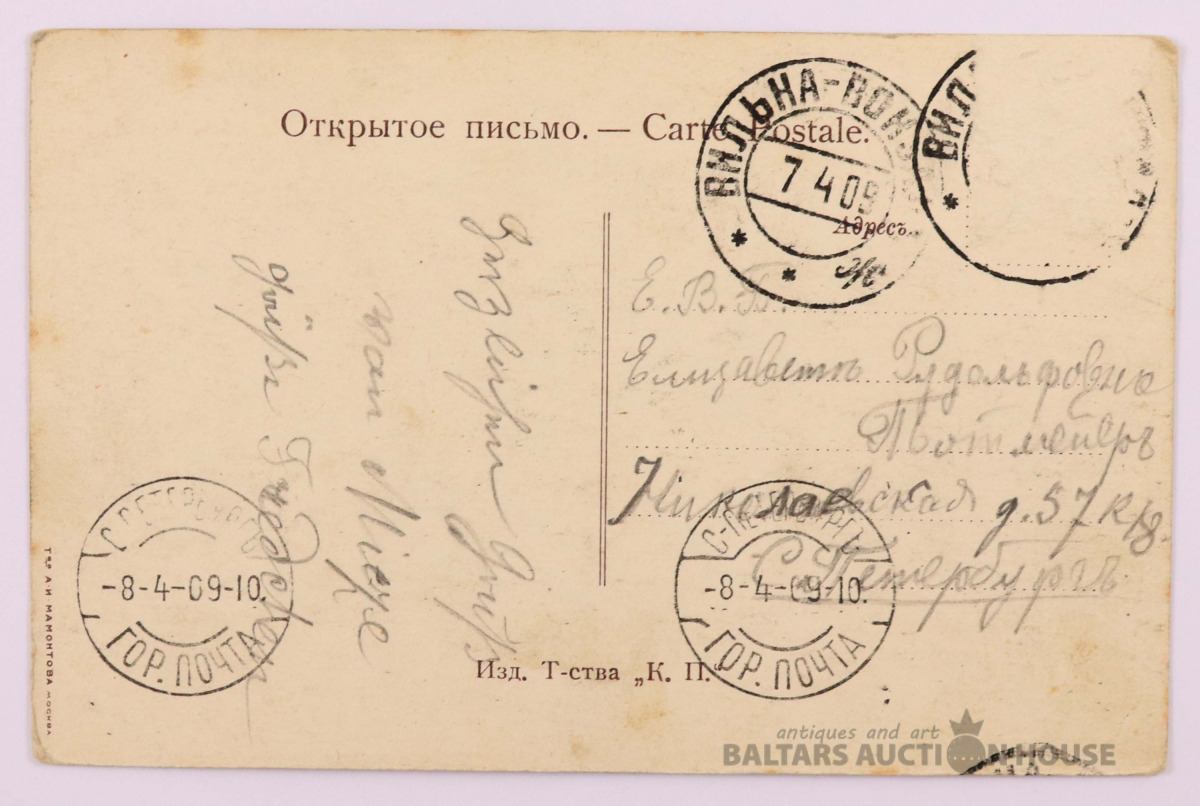 Открытое письмо. — Carte Postale.
ВИЛЬНА-ВОК
7 4 09
ВИЛ
Адресъ.
Е. В. Б.
Елизаветѣ Рудольфовнѣ
Николаевская д. 57 к 18.
С. Петербургъ
Herzlichen Gruß
von Mieze
С.-ПЕТЕРБУРГЪ
-8-4-09-10.
ГОР. ПОЧТА
С-ПЕТЕРБУРГЪ
-8-4-09-10.
ГОР. ПОЧТА
Изд. Т-ства „К. П.“
А. И. МАМОНТОВА МОСКВА
antiques and art
BALTARS AUCTION HOUSE